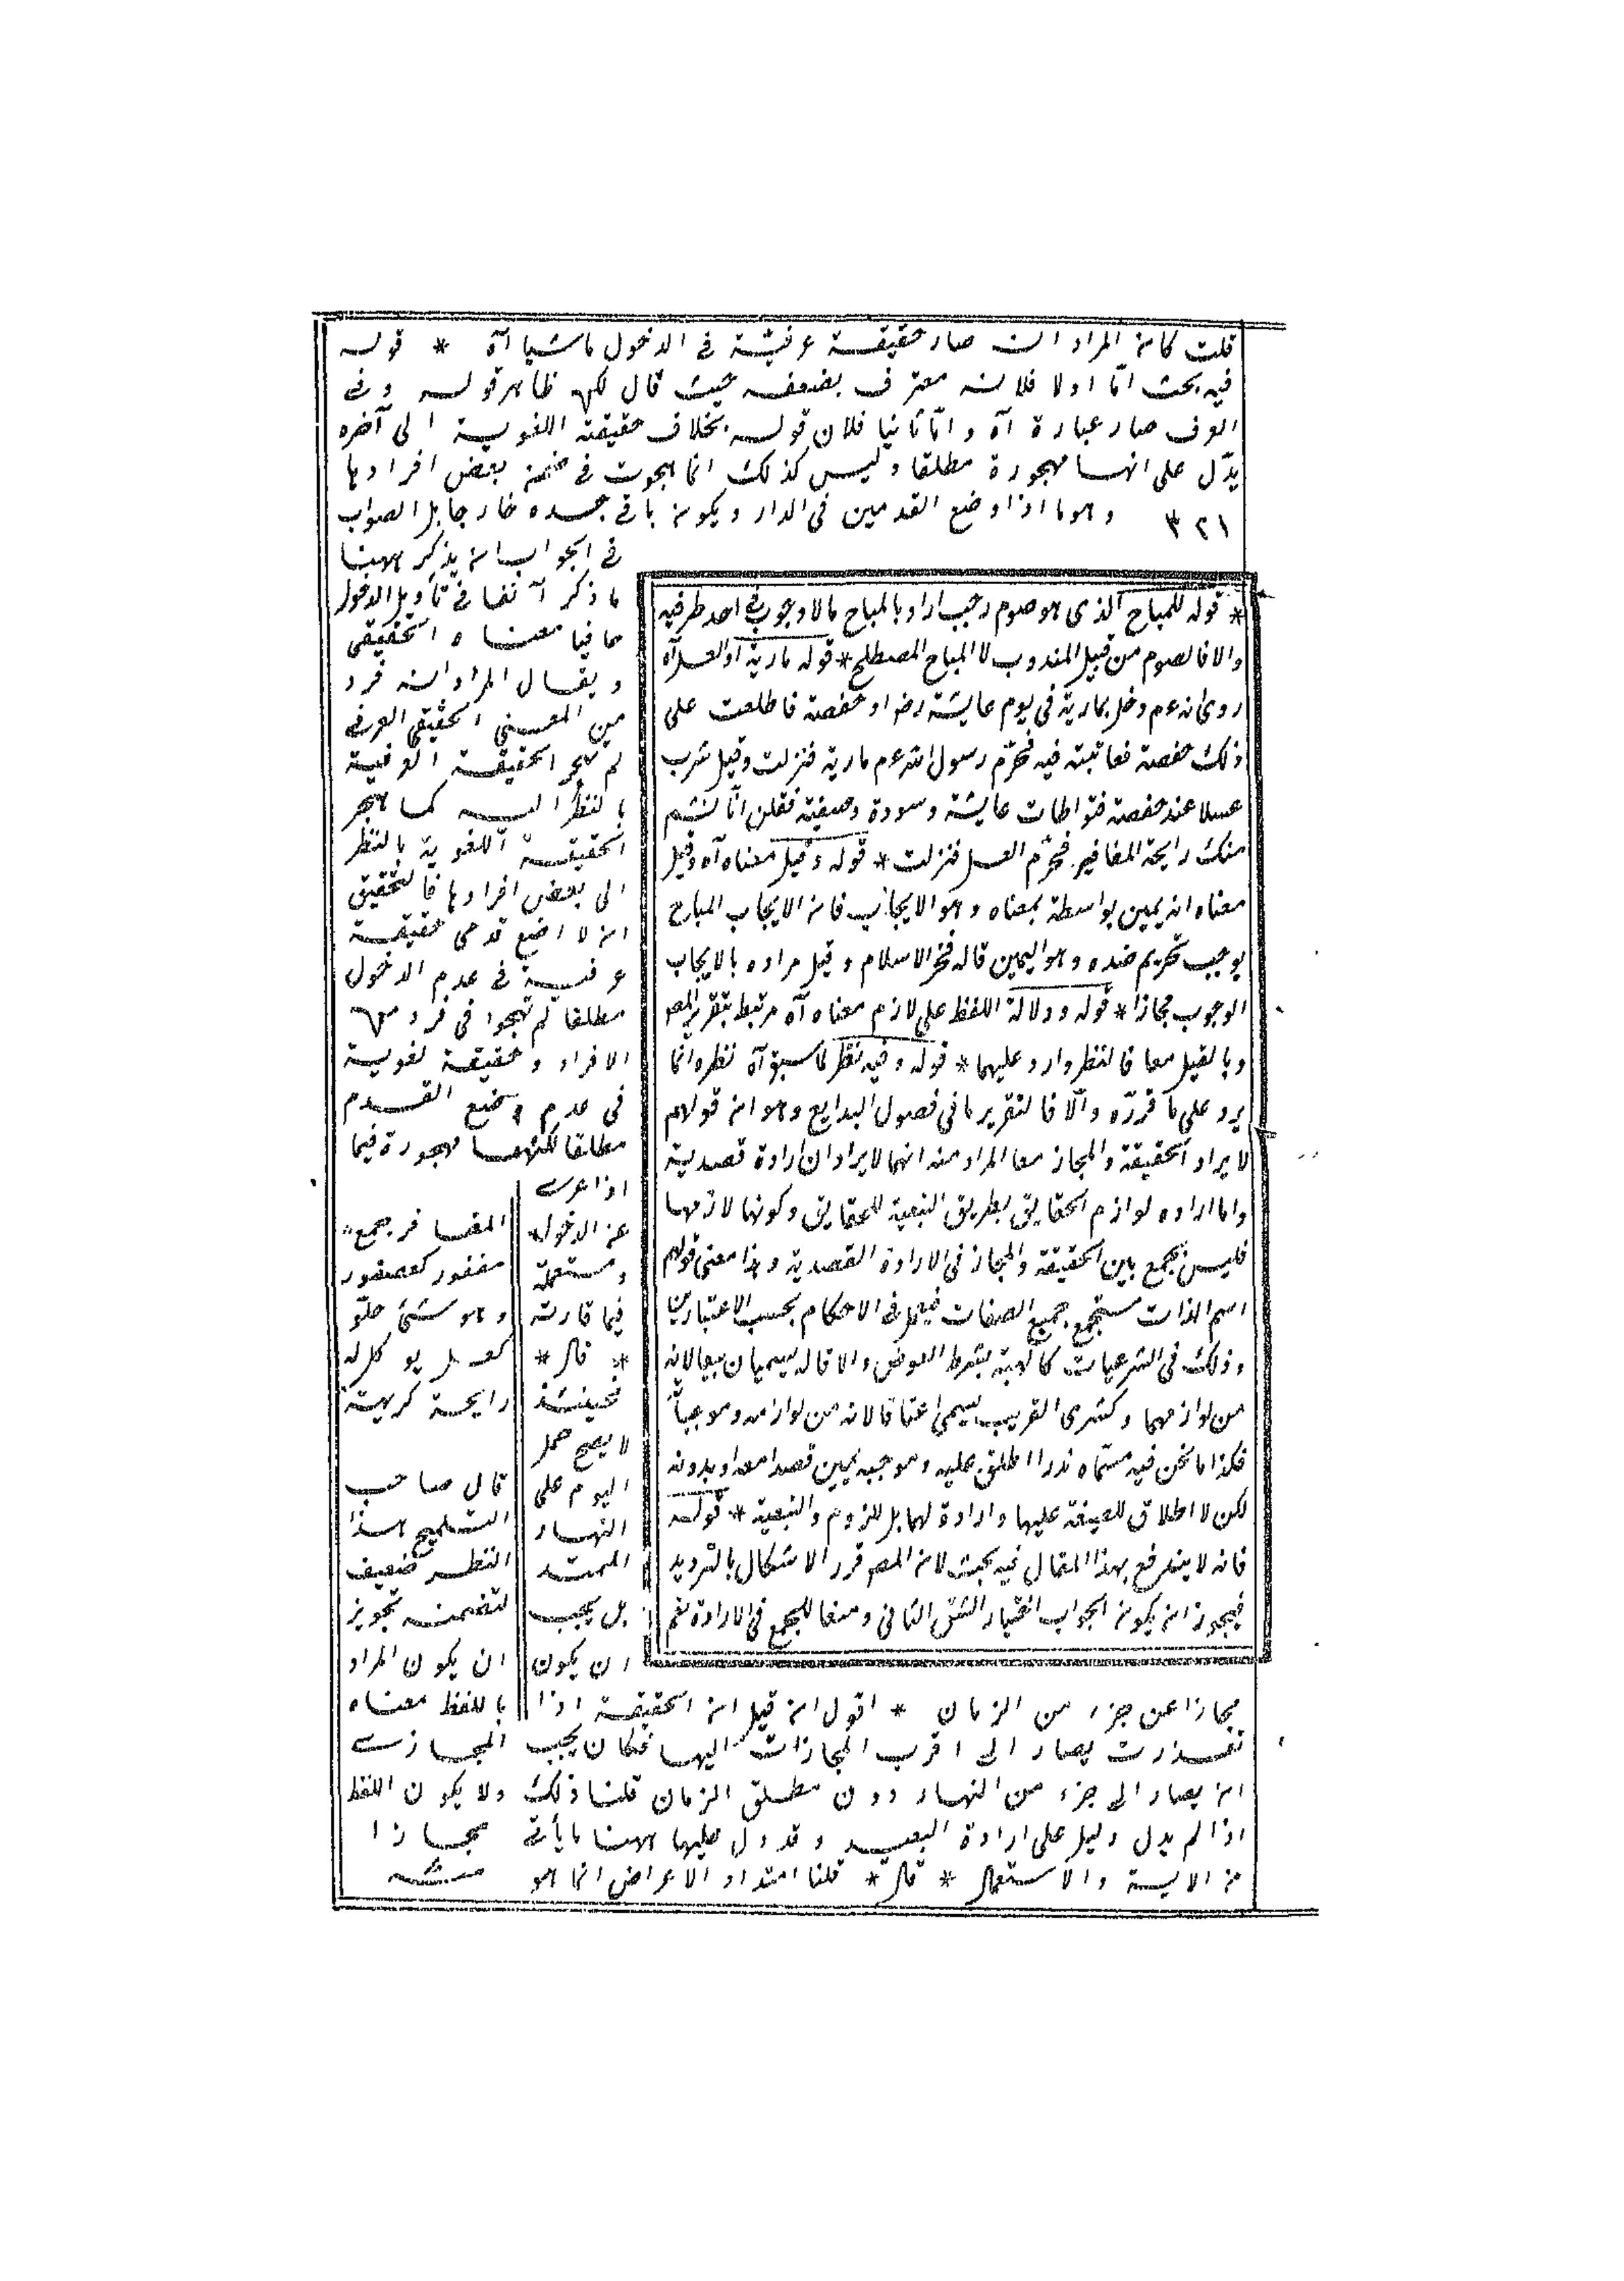 قلت كان المراد انه صار حقيقة عرفية في الدخول ماشيا آه * قوله
فيه بحث امّا اولا فلانه معترف بضعفه حيث قال لكنه ظاهر قوله وفي
العرف صار عبارة آه وامّا ثانيا فلان قوله بخلاف حقيقته اللغوية الى آخره
يدّل على انها مهجورة مطلقا وليس كذلك انما هجرت في ضمن بعض افرادها
٣٢١ وهو ما اذا وضع القدمين في الدار ويكون باقي جسده خارجا بل الصواب
في الجواب ان يذكر ههنا
ما ذكر آنفا في تأويل الدخول
حافيا معناه الحقيقي
ويقال المراد انه فرد
من المعنى الحقيقي العرفي
لم يهجر الحقيقة العرفية
بالنظر اليه كما هجر
الحقيقة اللغوية بالنظر
الى بعض افرادها فالتحقيق
ان لا اضع قدمي حقيقة
عرفية في عدم الدخول
مطلقا لم تهجر في فرد من
الافراد وحقيقة لغوية
في عدم وضع القدم
مطلقا لكنها مهجورة فيما
اذا عرى
عن الدخول
ومستعملة
فيما قارنه
* قال *
فحينئذ
لا يصح حمل
اليوم على
النهار
الممتد
بل يجب
ان يكون
مجازا عن جزء من الزمان * اقول ان قيل ان الحقيقة اذا
تعذرت يصار الى اقرب المجازات اليها فكان يجب
ان يصار الى جزء من النهار دون مطلق الزمان قلنا ذلك
اذا لم يدل دليل على ارادة البعيد وقد دل عليها ههنا ما يأتي
من الاية والاستعمال * قال * قلنا امتداد الاعراض انما هو
* قوله للمباح الذى هو صوم رجب اراد بالمباح ما لا وجوب في احد طرفيه
والا فالصوم من قبيل المندوب لا المباح المصطلح * قوله مارية او العسل آه
روى انه عم دخل بمارية في يوم عايشة رضه او حفصة فاطلعت على
ذلك حفصة فعاتبته فيه فحرّم رسول الله عم مارية فنزلت وقيل شرب
عسلا عند حفصة فتواطأت عايشة وسودة وصفية فقلن انّا لنشم
منك رايحة المغافير فحرّم العسل فنزلت * قوله وقيل معناه آه وقيل
معناه انه يمين بواسطة بمعناه وهو الايجاب فان الايجاب المباح
يوجب تحريم ضده وهو اليمين قاله فخر الاسلام وقيل مراده بالايجاب
الوجوب مجازا * قوله ودلالة اللفظ على لازم معناه آه مرتبط بتقرير المص
وبالقيل معا فالنظر وارد عليهما * قوله وفيه نظر لما سبق آه نظره انما
يرد على ما قررّه والّا فالتقرير ما في فصول البدايع وهو ان قولهم
لا يراد الحقيقة والمجاز معا المراد منه انهما لا يرادان ارادة قصدية
واما اراده لوازم الحقايق بطريق التبعية للحقايق وكونها لازمها
فليس بجمع بين الحقيقة والمجاز في الارادة القصدية وهذا معنى قولهم
اسم الذات مستجمع جميع الصفات فيعمل في الاحكام بحسب الاعتبارين
وذلك في الشرعيات كالهبة بشرط العوض والاقاله يسميان بيعا لانه
من لوازمهما وكشرى القريب يسمى اعتاقا لانه من لوازمه وموجباته
فكذا ما نحن فيه مسّماه نذر اطلق عليه وموجبه يمين قصدا معه او بدونه
لكن لا اطلاق للصيغة عليها وارادة لها بل للزوم والتبعية * قوله
فانه لا يندفع بهذا المقال فيه بحث لان المص قرر الاشكال بالترديد
فيجوز ان يكون الجواب اختيار الشق الثاني ومنعا للجمع في الارادة نعم
المغافر جمع
مغفور كعصفور
وهو شئ حلو
كعسل يؤكل له
رايحة كريهة
قال صاحب
التلميح هذا
النظر ضعيف
لتضمنه تجويز
ان يكون المراد
باللفظ معناه
المجازى
ولا يكون اللفظ
مجازا
منه